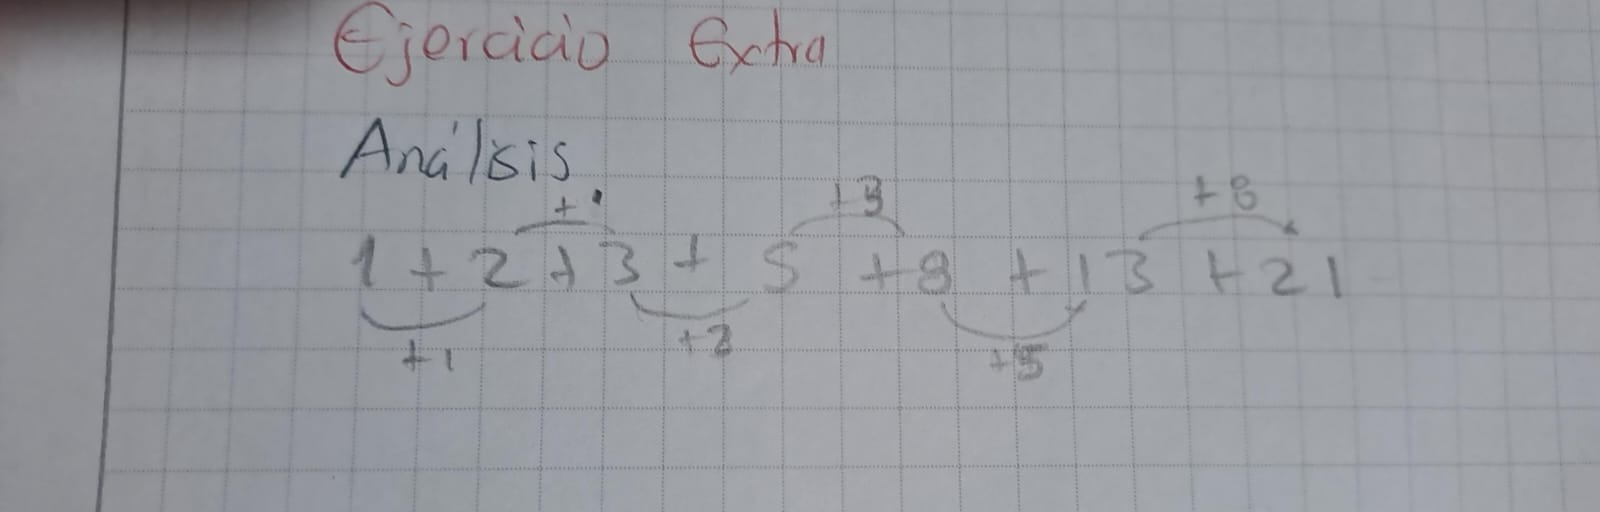 Ejercicio Extra
Análisis
+1 +3 +8
1 + 2 + 3 + 5 + 8 + 13 + 21
+1 +2 +5